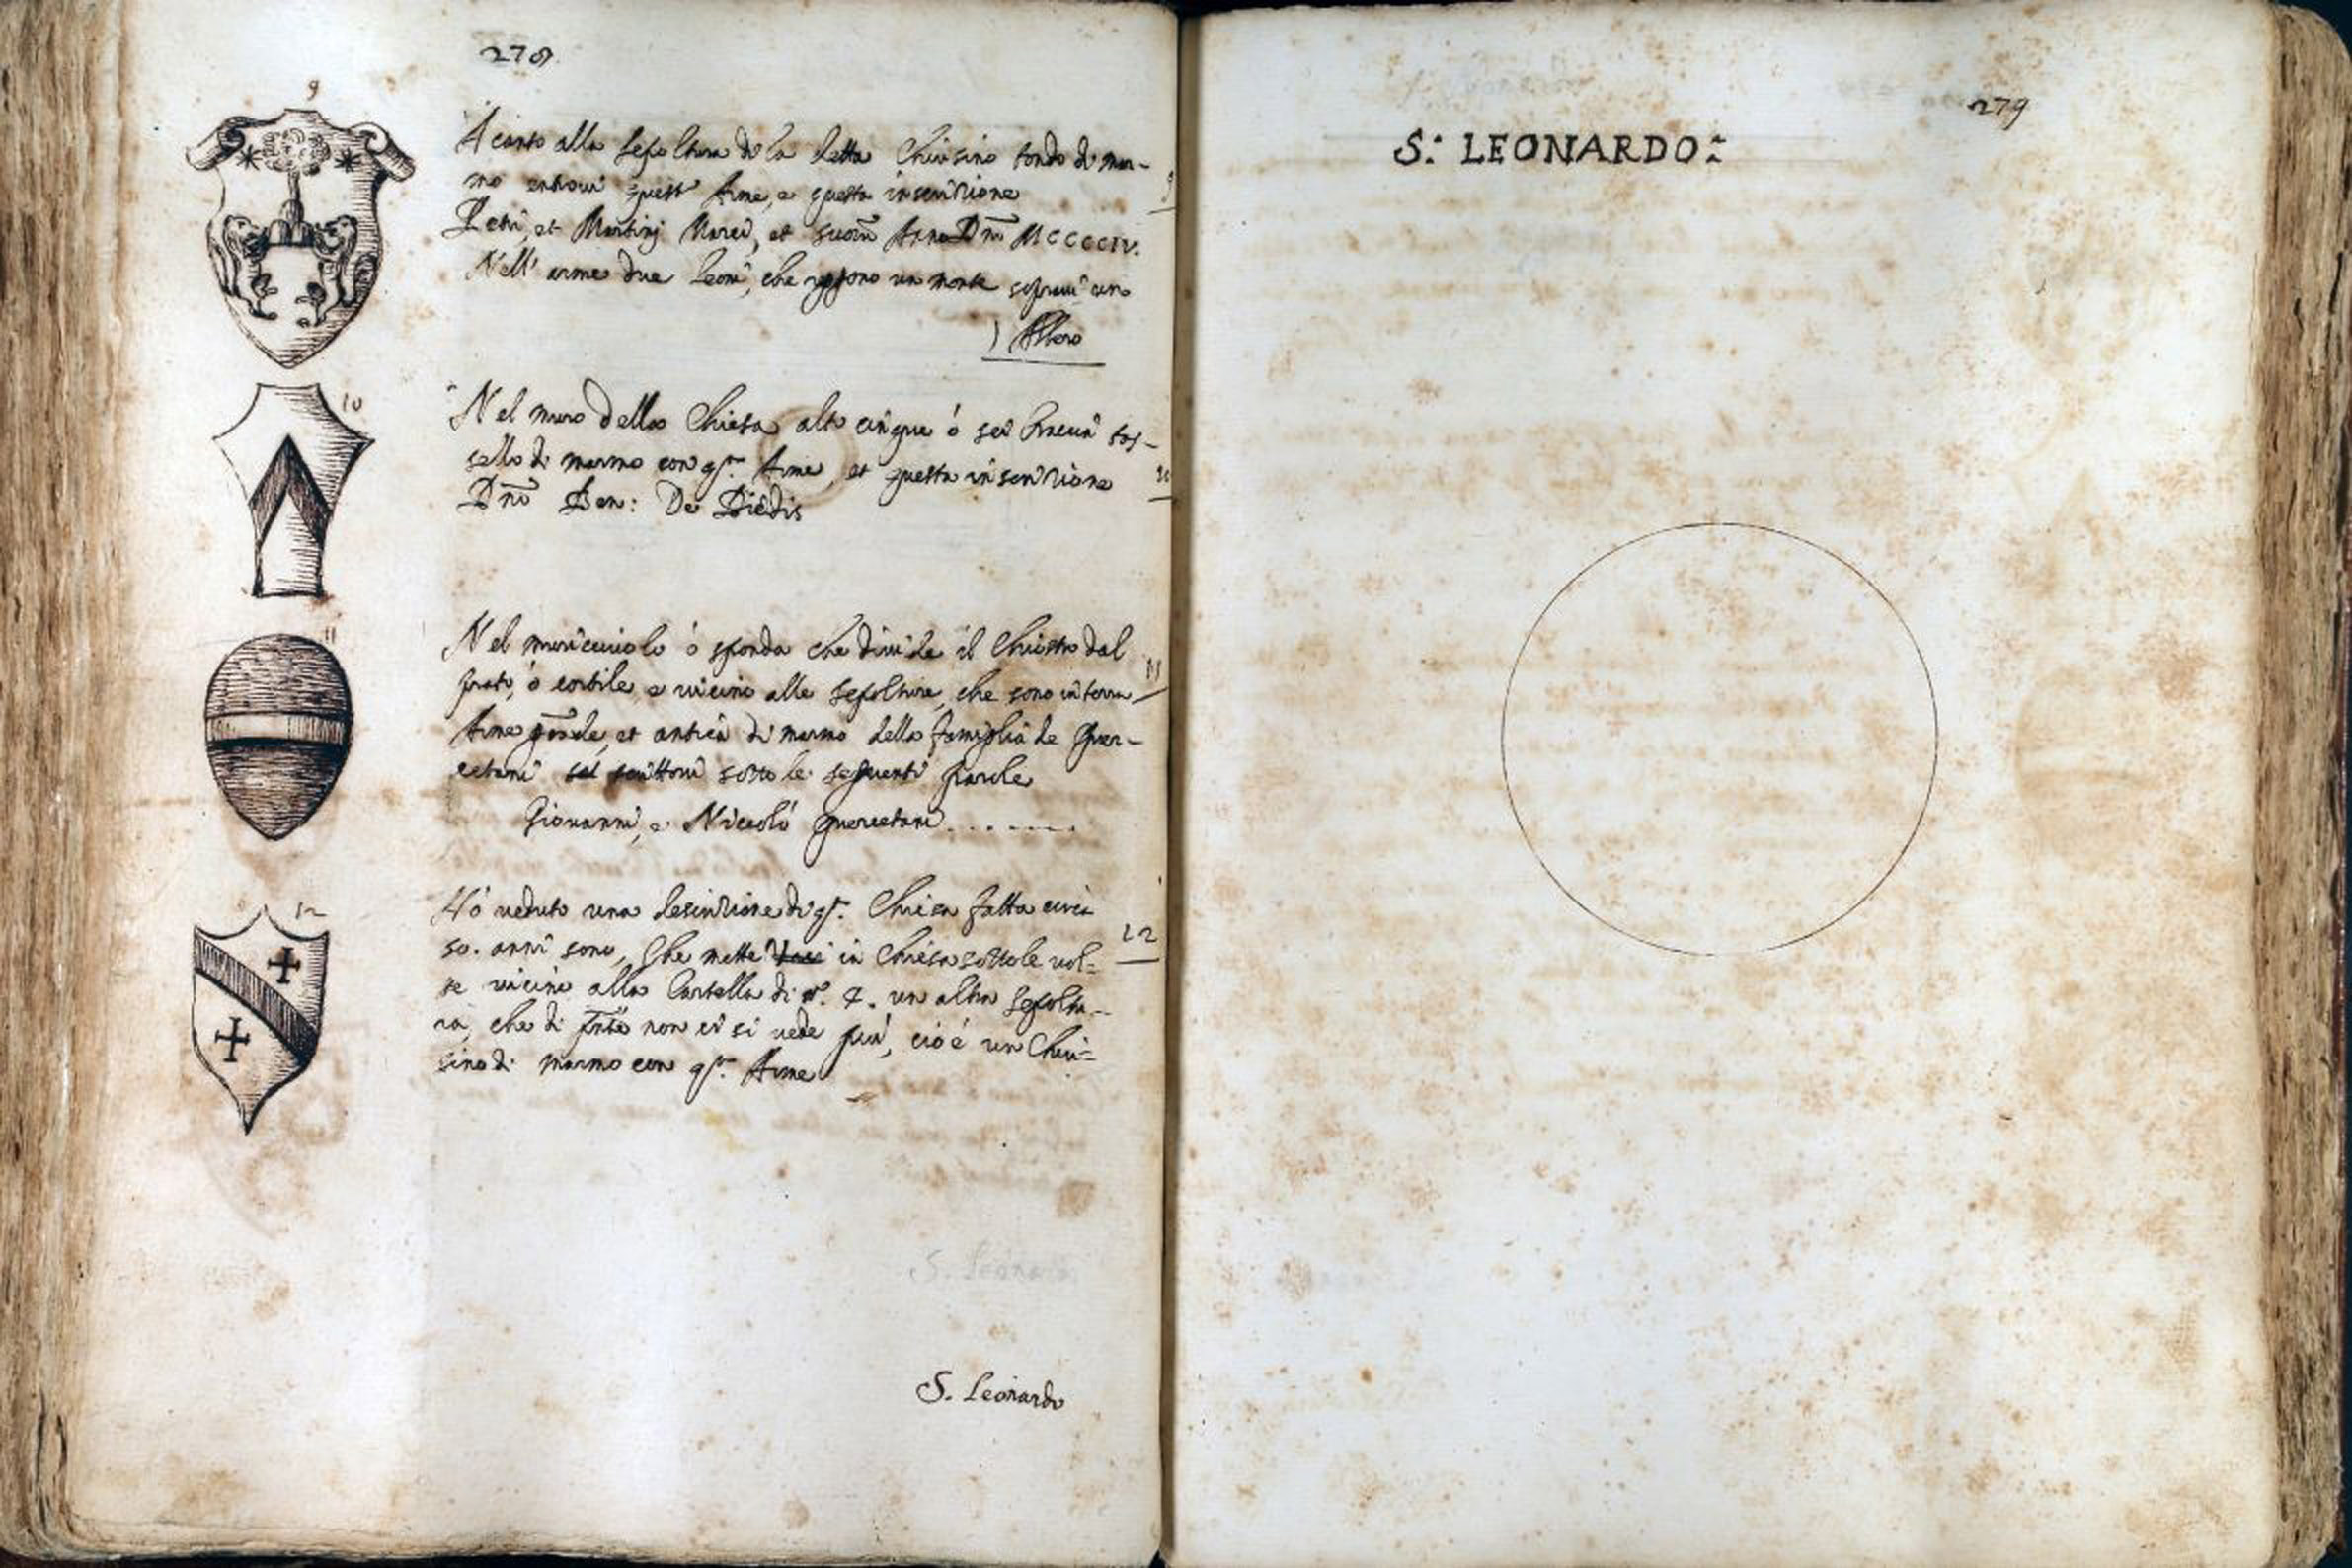 278
9
A canto alla sepoltura de la detta Chiusino tondo di mar-
mo entrovi quest' Arme, e questa inscrizione
9
Petri, et Martinj Marci, et suorū Anno Dnī MCCCCIV.
Nell' arme due leoni, che reggono un monte sopravi un
Albero
10
Nel muro della Chiesa alto cinque ó sei braccia tas-
sello di marmo con qst. Arme, et questa inscrizione
10
Dnō Ben: De
Nel muricciuolo ó sponda che divide il Chiostro dal
11
11
prato, ó cortile, e vicino alle sepolture, che sono in terra
Arme grande, et antica di marmo della famiglia de Quer-
cetani scrittovi sotto le seguenti parole
Giovanni, e Niccoló Quercetani........
12
Hó veduto una descrizione di qst. Chiesa fatta circa
12
50. anni sono, che mette in Chiesa sotto le vol=
te vicino alla Cartella di nº. 7. un altra sepoltu-
ra, che di pnte non ci si vede piú, cioé un Chiu=
sino di marmo con qst. Arme
S. Leonardo
S. Leonardo
279
S. LEONARDO.